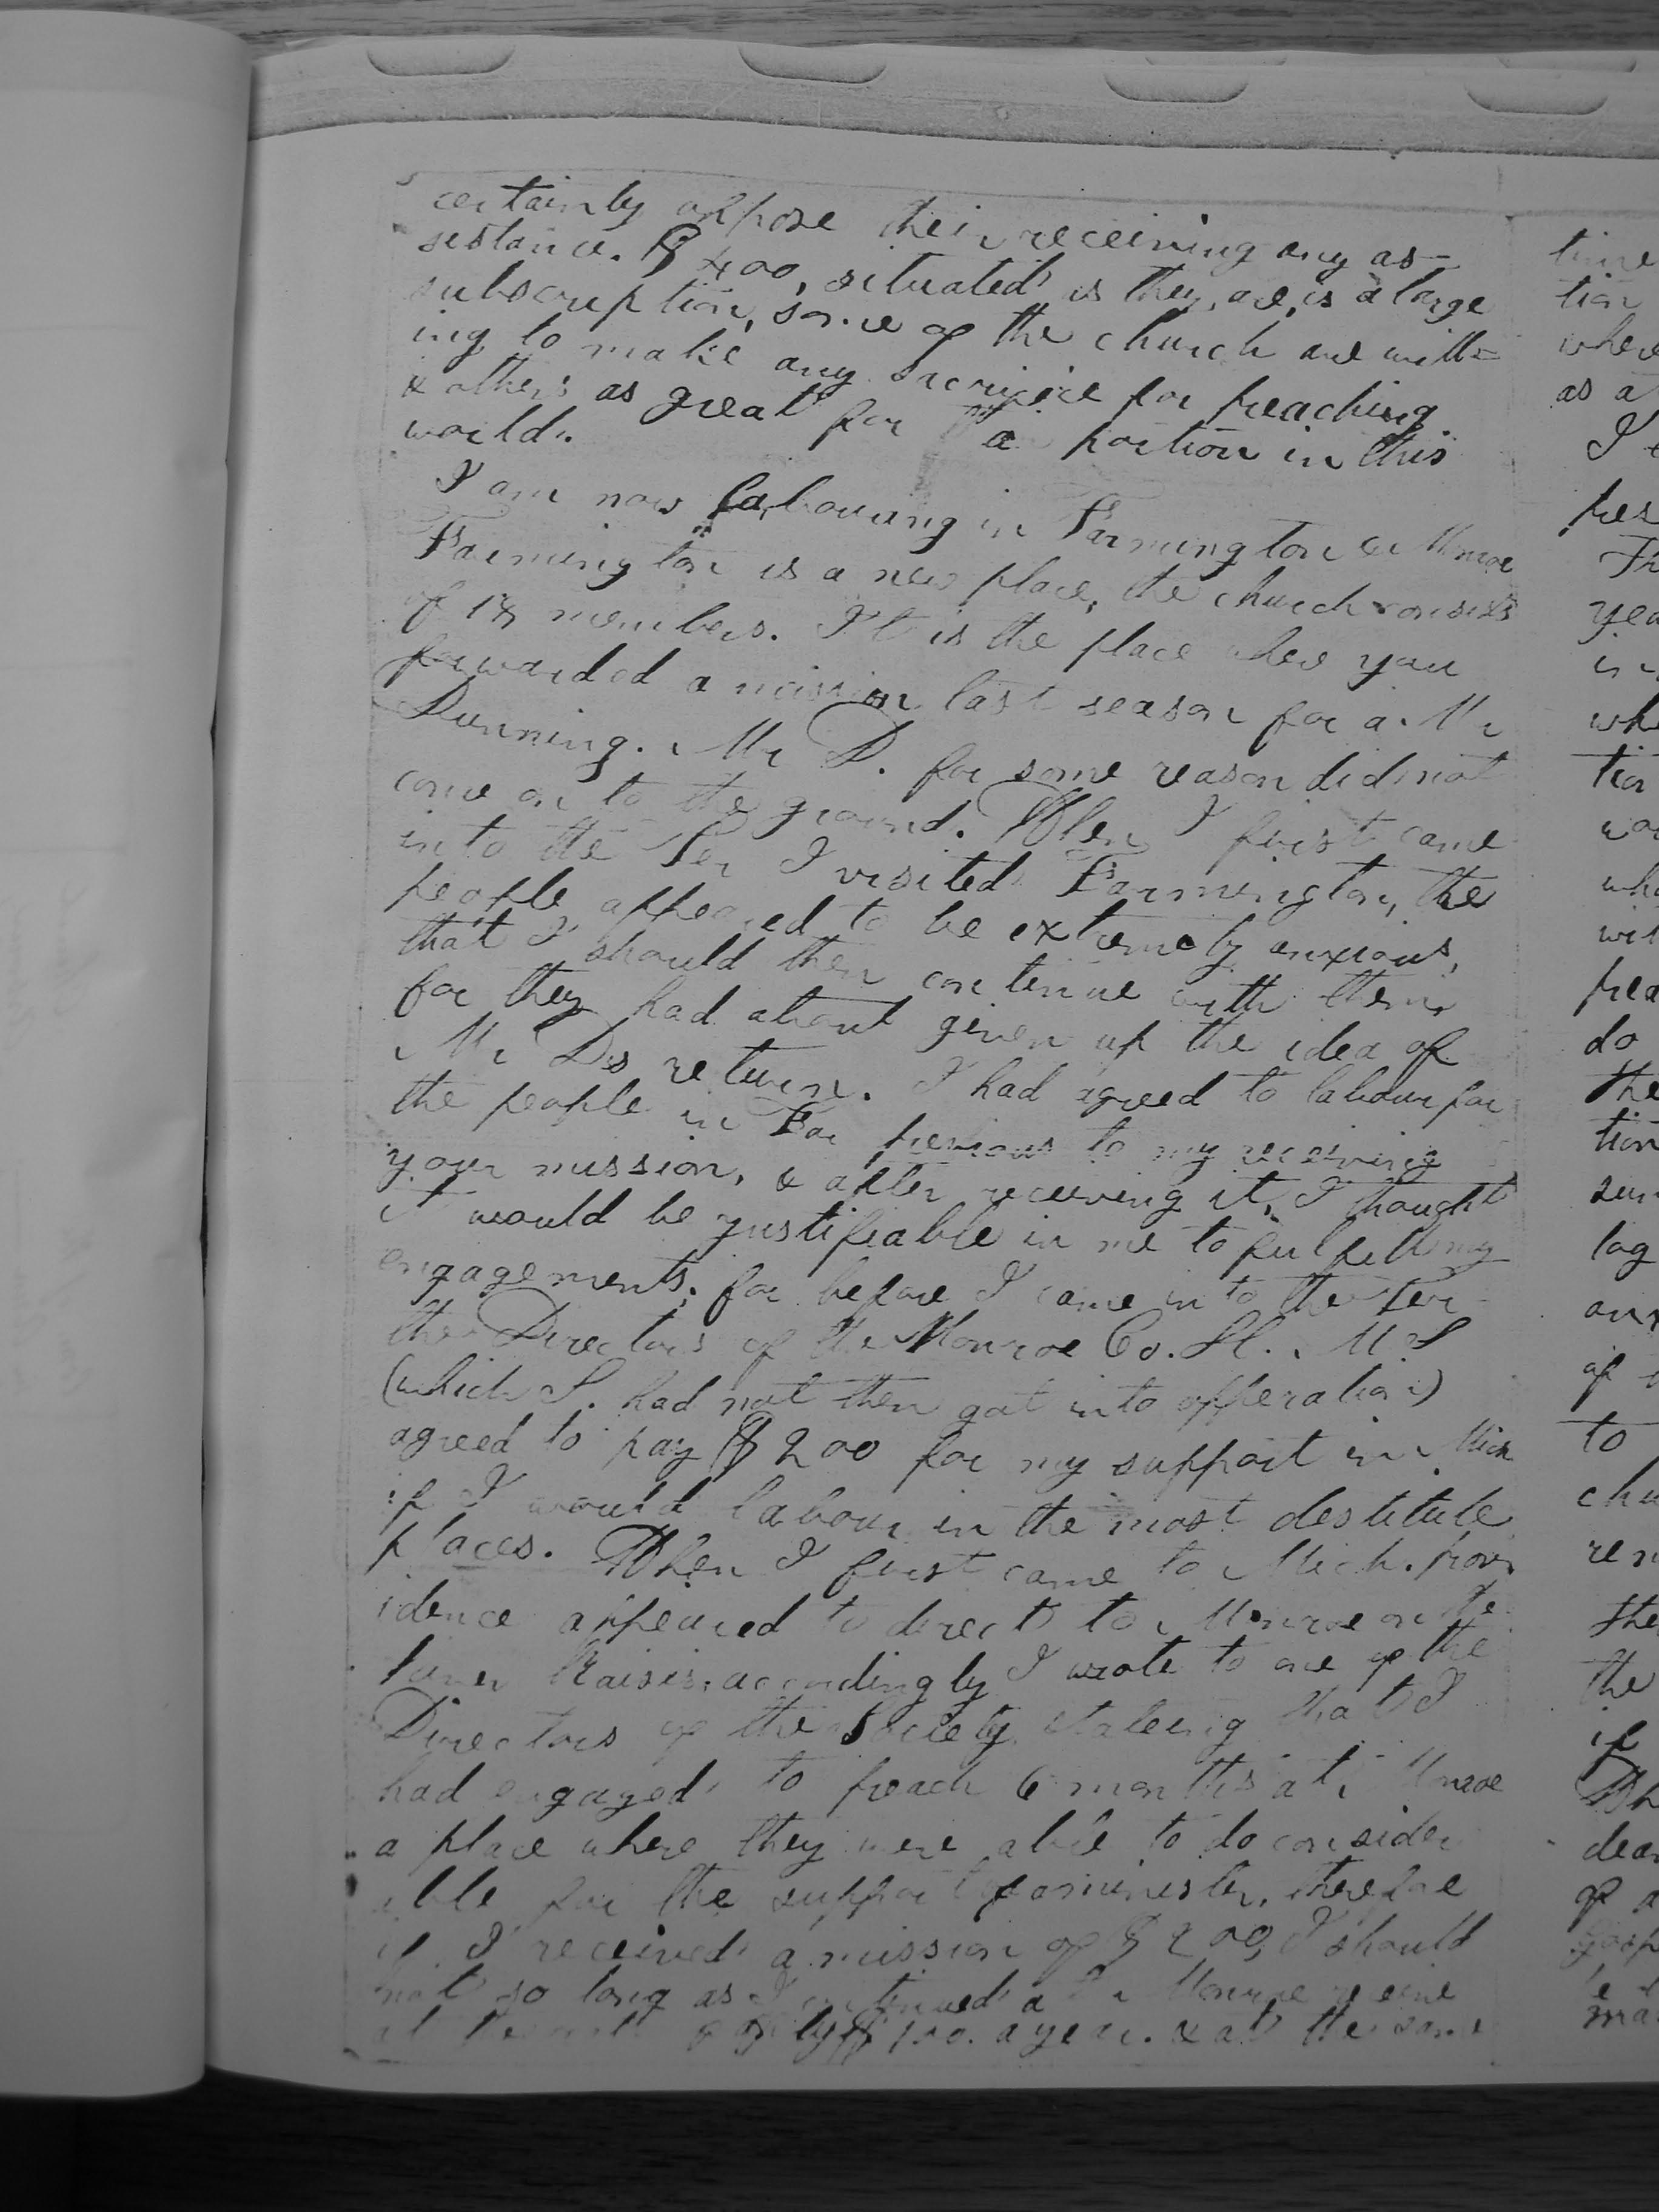 certainly oppose their receiving any as-
sistance. $400, situated as they are, is a large
subscription, some of the church are will=
ing to make any sacrifice for preaching
& others as great for a portion in this
world.
I am now labouring in Farmington & Monroe
Farmington is a new place, the church consists
of 18 members. It is the place where you
forwarded a mission last season for a Mr
Dunning. Mr D. for some reason did not
come on to the ground. When I first came
into the Ter I visited Farmington, the
people appeared to be extremely anxious,
that I should then continue with them,
for they had about given up the idea of
Mr Ds return. I had agreed to labour for
the people in Far previous to my receiving
your mission, & after receiving it, I thought
it would be justifiable in me to fulfill my
engagements; for before I came in to the Ter
the Directors of the Monroe Co. H. M. S
(which S. had not then got into opperation)
agreed to pay $200 for my support in Mich
if I would labour in the most destitute
places. When I first came to Mich. prov
idence appeared to direct to Monroe on the
River Raisin; accordingly I wrote to one of the
Directors of the Society stateing that I
had engaged to preach 6 months at Monroe
a place where they were able to do consider
able for the support of a minester, therefore
if I received a mission of $200, I should
not so long as I continued at Monroe receive
at the $100. a year. & at the same
time
tion
where
as a
I
pres
Th
yea
in
whe
tion
wou
who
wis
prea
do
the
tion
sun
log
anx
of
to
chu
ren
the
the
if
Wh
dear
of a
gosp
be
ma